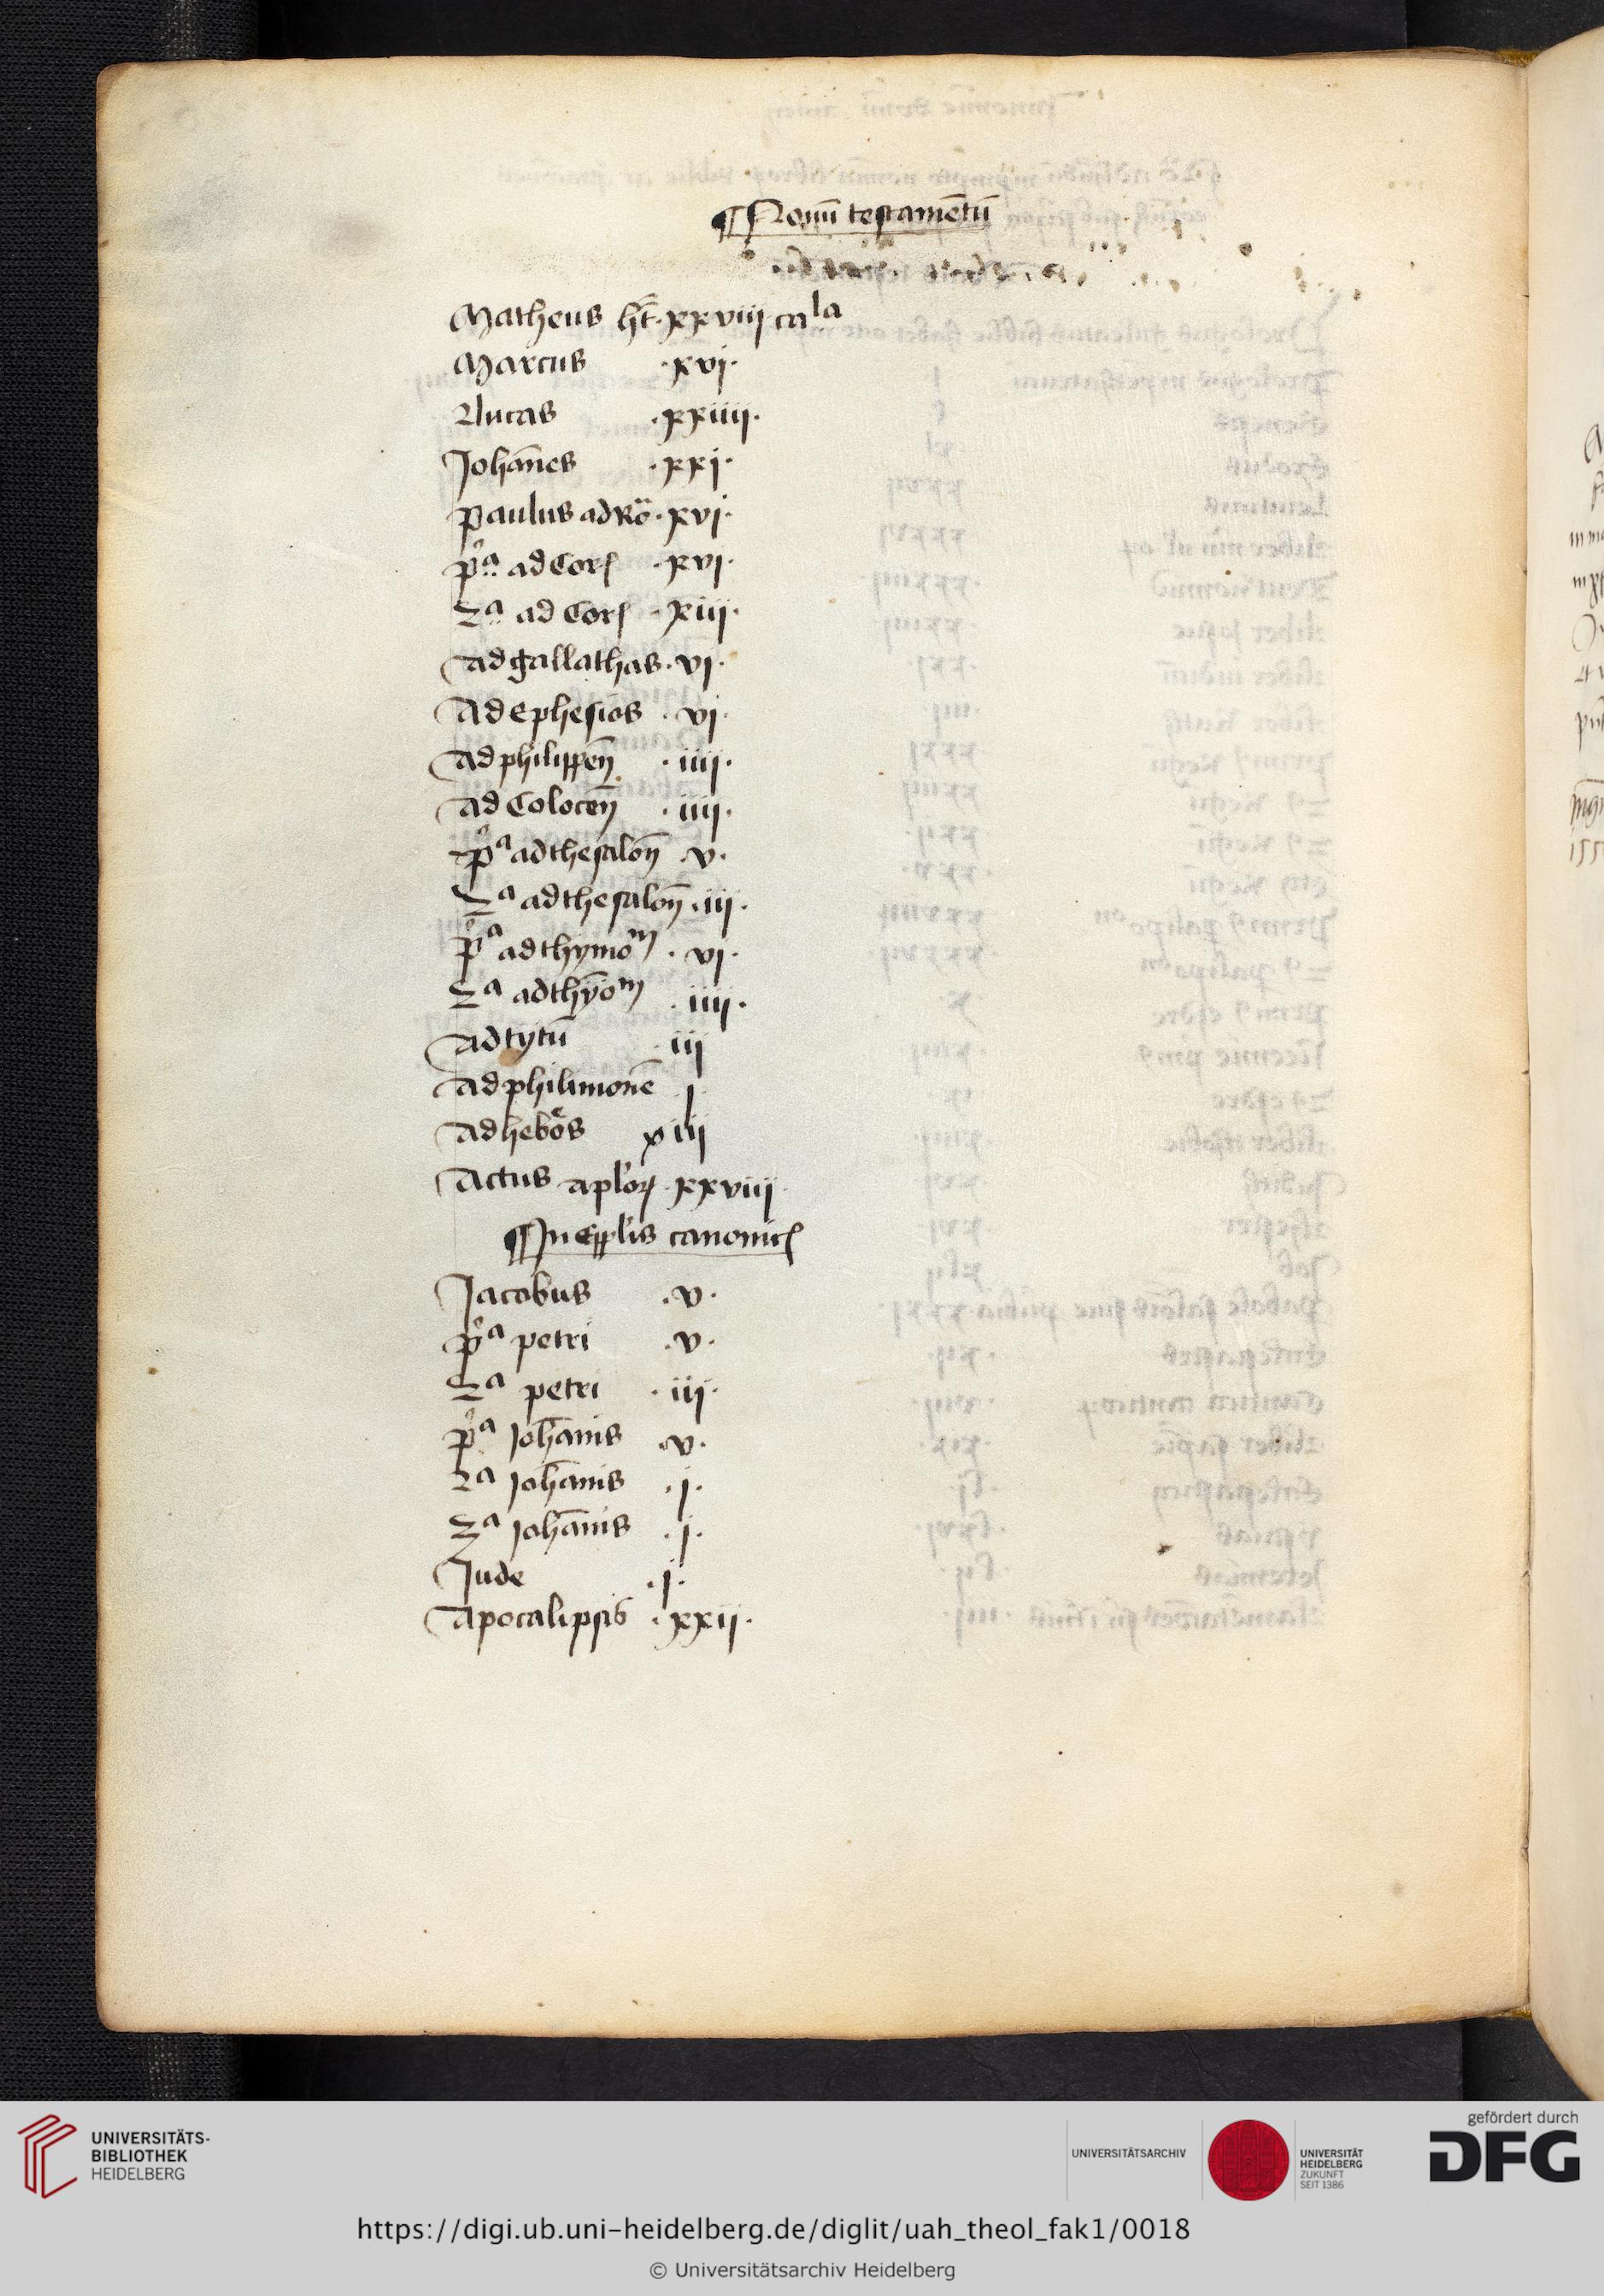 ¶ Nouū testamētū
Matheus hꝫt · xxviii ca^la
Marcus · xvj ·
Lucas · xxiiij ·
Johānes · xxj ·
paulus ad Ro · xvj ·
p^a ad Corꝭ · xvj ·
2^a ad Corꝭ · xiij ·
Ad gallathas · vj ·
Ad ephesios · vj ·
Ad philippeñ · iiij ·
Ad Coloceñ · iiij ·
p^a ad thesaloñ · v ·
2^a ad thesaloñ · iij ·
p^a ad thymo^m · vj ·
2^a ad thȳo^m · iiij ·
Ad tytū · iij
Ad philimonē j
Ad heb^eos xiij
Actus aplorꝫ · xxviij
¶ In Epplis canonicꝭ
Jacobus · v ·
p^a petri · v ·
2^a petri · iij ·
p^a Johānis · v ·
2^a Johānis · j ·
3^a Johānis · j ·
Jude · j ·
Apocalipsis · xxij ·
UNIVERSITÄTS-
BIBLIOTHEK
HEIDELBERG
UNIVERSITÄTSARCHIV
UNIVERSITÄT
HEIDELBERG
ZUKUNFT
SEIT 1386
gefördert durch
DFG
https://digi.ub.uni-heidelberg.de/diglit/uah_theol_fak1/0018
© Universitätsarchiv Heidelberg